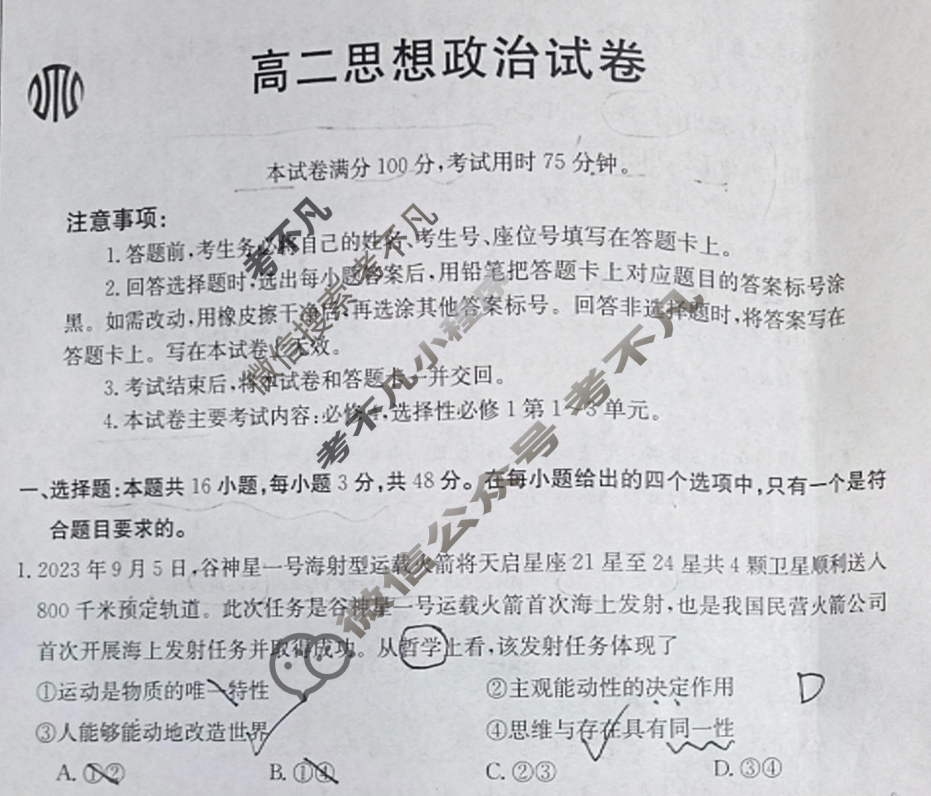 高二思想政治试卷
本试卷满分100分,考试用时75分钟。
注意事项:
1.答题前,考生务必将自己的姓名、考生号、座位号填写在答题卡上。
2.回答选择题时,选出每小题答案后,用铅笔把答题卡上对应题目的答案标号涂
黑。如需改动,用橡皮擦干净后,再选涂其他答案标号。回答非选择题时,将答案写在
答题卡上。写在本试卷上无效。
3.考试结束后,将本试卷和答题卡一并交回。
4.本试卷主要考试内容:必修4,选择性必修1第1~3单元。
一、选择题:本题共16小题,每小题3分,共48分。在每小题给出的四个选项中,只有一个是符
合题目要求的。
1.2023年9月5日,谷神星一号海射型运载火箭将天启星座21星至24星共4颗卫星顺利送入
800千米预定轨道。此次任务是谷神星一号运载火箭首次海上发射,也是我国民营火箭公司
首次开展海上发射任务并取得成功。从哲学上看,该发射任务体现了
①运动是物质的唯一特性 ②主观能动性的决定作用 D
③人能够能动地改造世界 ④思维与存在具有同一性
A.①② B.①④ C.②③ D.③④
考不凡
微信搜索考不凡
考不凡小程序
微信公众号 考不凡